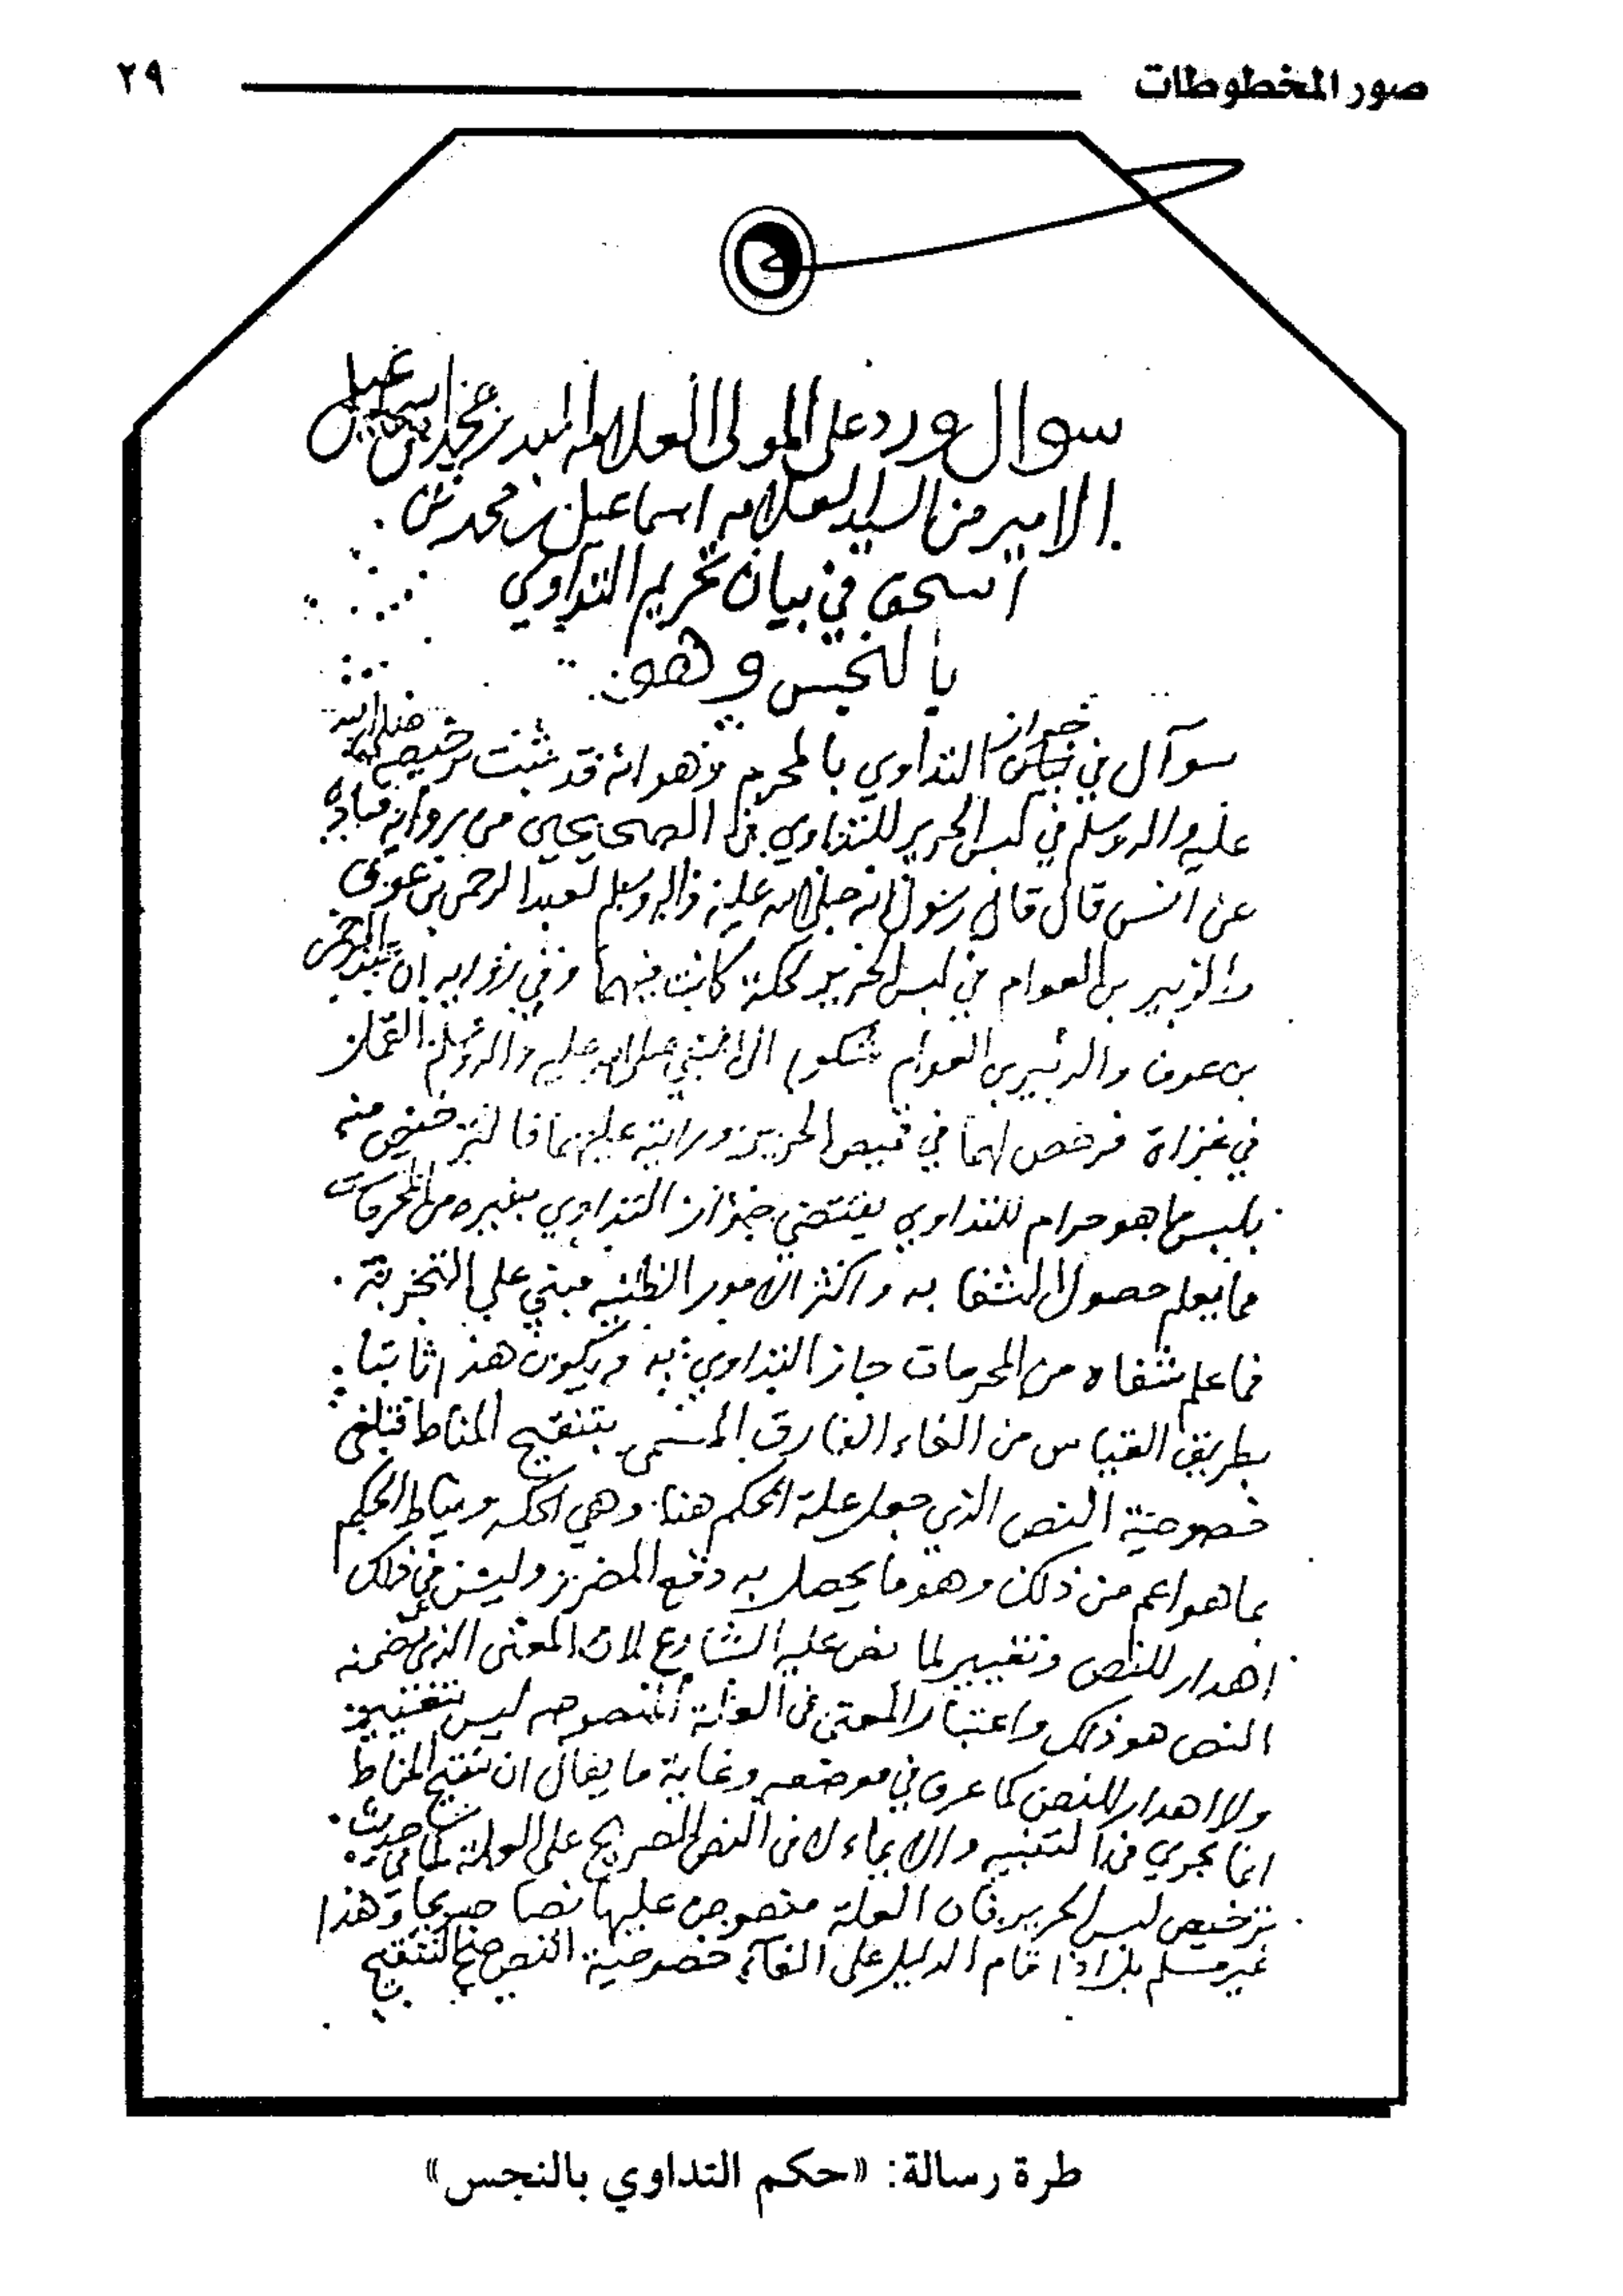 صور المخطوطات
٢٩
سوال ورد على المولى العلامه البدر محمد بن اسماعيل
الامير من السيد العلامه اسماعيل بن محمد بن
اسحق في بيان تحريم التداوي
بالنجس وهو
سوآل في جواز التداوي بالمحرم وهو انه قد ثبت ترخيصه صلى الله
عليه واله وسلم في لبس الحرير للتداوي في الصحيحين من رواية قتادة
عن انس قال قال رسول الله صلى الله عليه واله وسلم لعبد الرحمن بن عوف
والزبير بن العوام في لبس الحرير لحكة كانت فيهما وفي رواية ان عبد الرحمن
بن عوف والزبير بن العوام شكوا الى النبي صلى الله عليه واله وسلم القمل
في غزاة فرخص لهما في قميص الحرير ورايته عليهما فالترخيص منه
بلبس ما هو حرام للتداوي يقتضي جواز التداوي بغيره من المحرمات
مما يعلم حصول الشفا به واكثر الامور الظنيه مبني على التجربة
فما علم شفاه من المحرمات جاز التداوي به ويكون هذا ثابتا
بطريق القياس من الغاء الفارق المسمى بتنقيح المناط فتلغى
خصوصية النص الذي جعل علة الحكم هنا وهي الحكه ويناط الحكم
بما هو اعم من ذلك وهو ما يحصل به دفع الضرر وليس في ذلك
اهدار للنص وتغيير لما نص عليه الشارع لان المعنى الذي تضمنه
النص هو ذلك واعتبار المعنى في العلة المنصوصه ليس بتغيير
ولا اهدار للنص كما عرف في موضعه وغاية ما يقال ان تنقيح المناط
انما يجري في التنبيه والايماء لا في النص الصريح على العلة كما في حديث
ترخيص لبس الحرير فان العلة منصوص عليها نصا صريحا وهذا
غير مسلم بل اذا قام الدليل على الغآء خصوصية النص صح التنقيح
طرة رسالة: «حكم التداوي بالنجس»